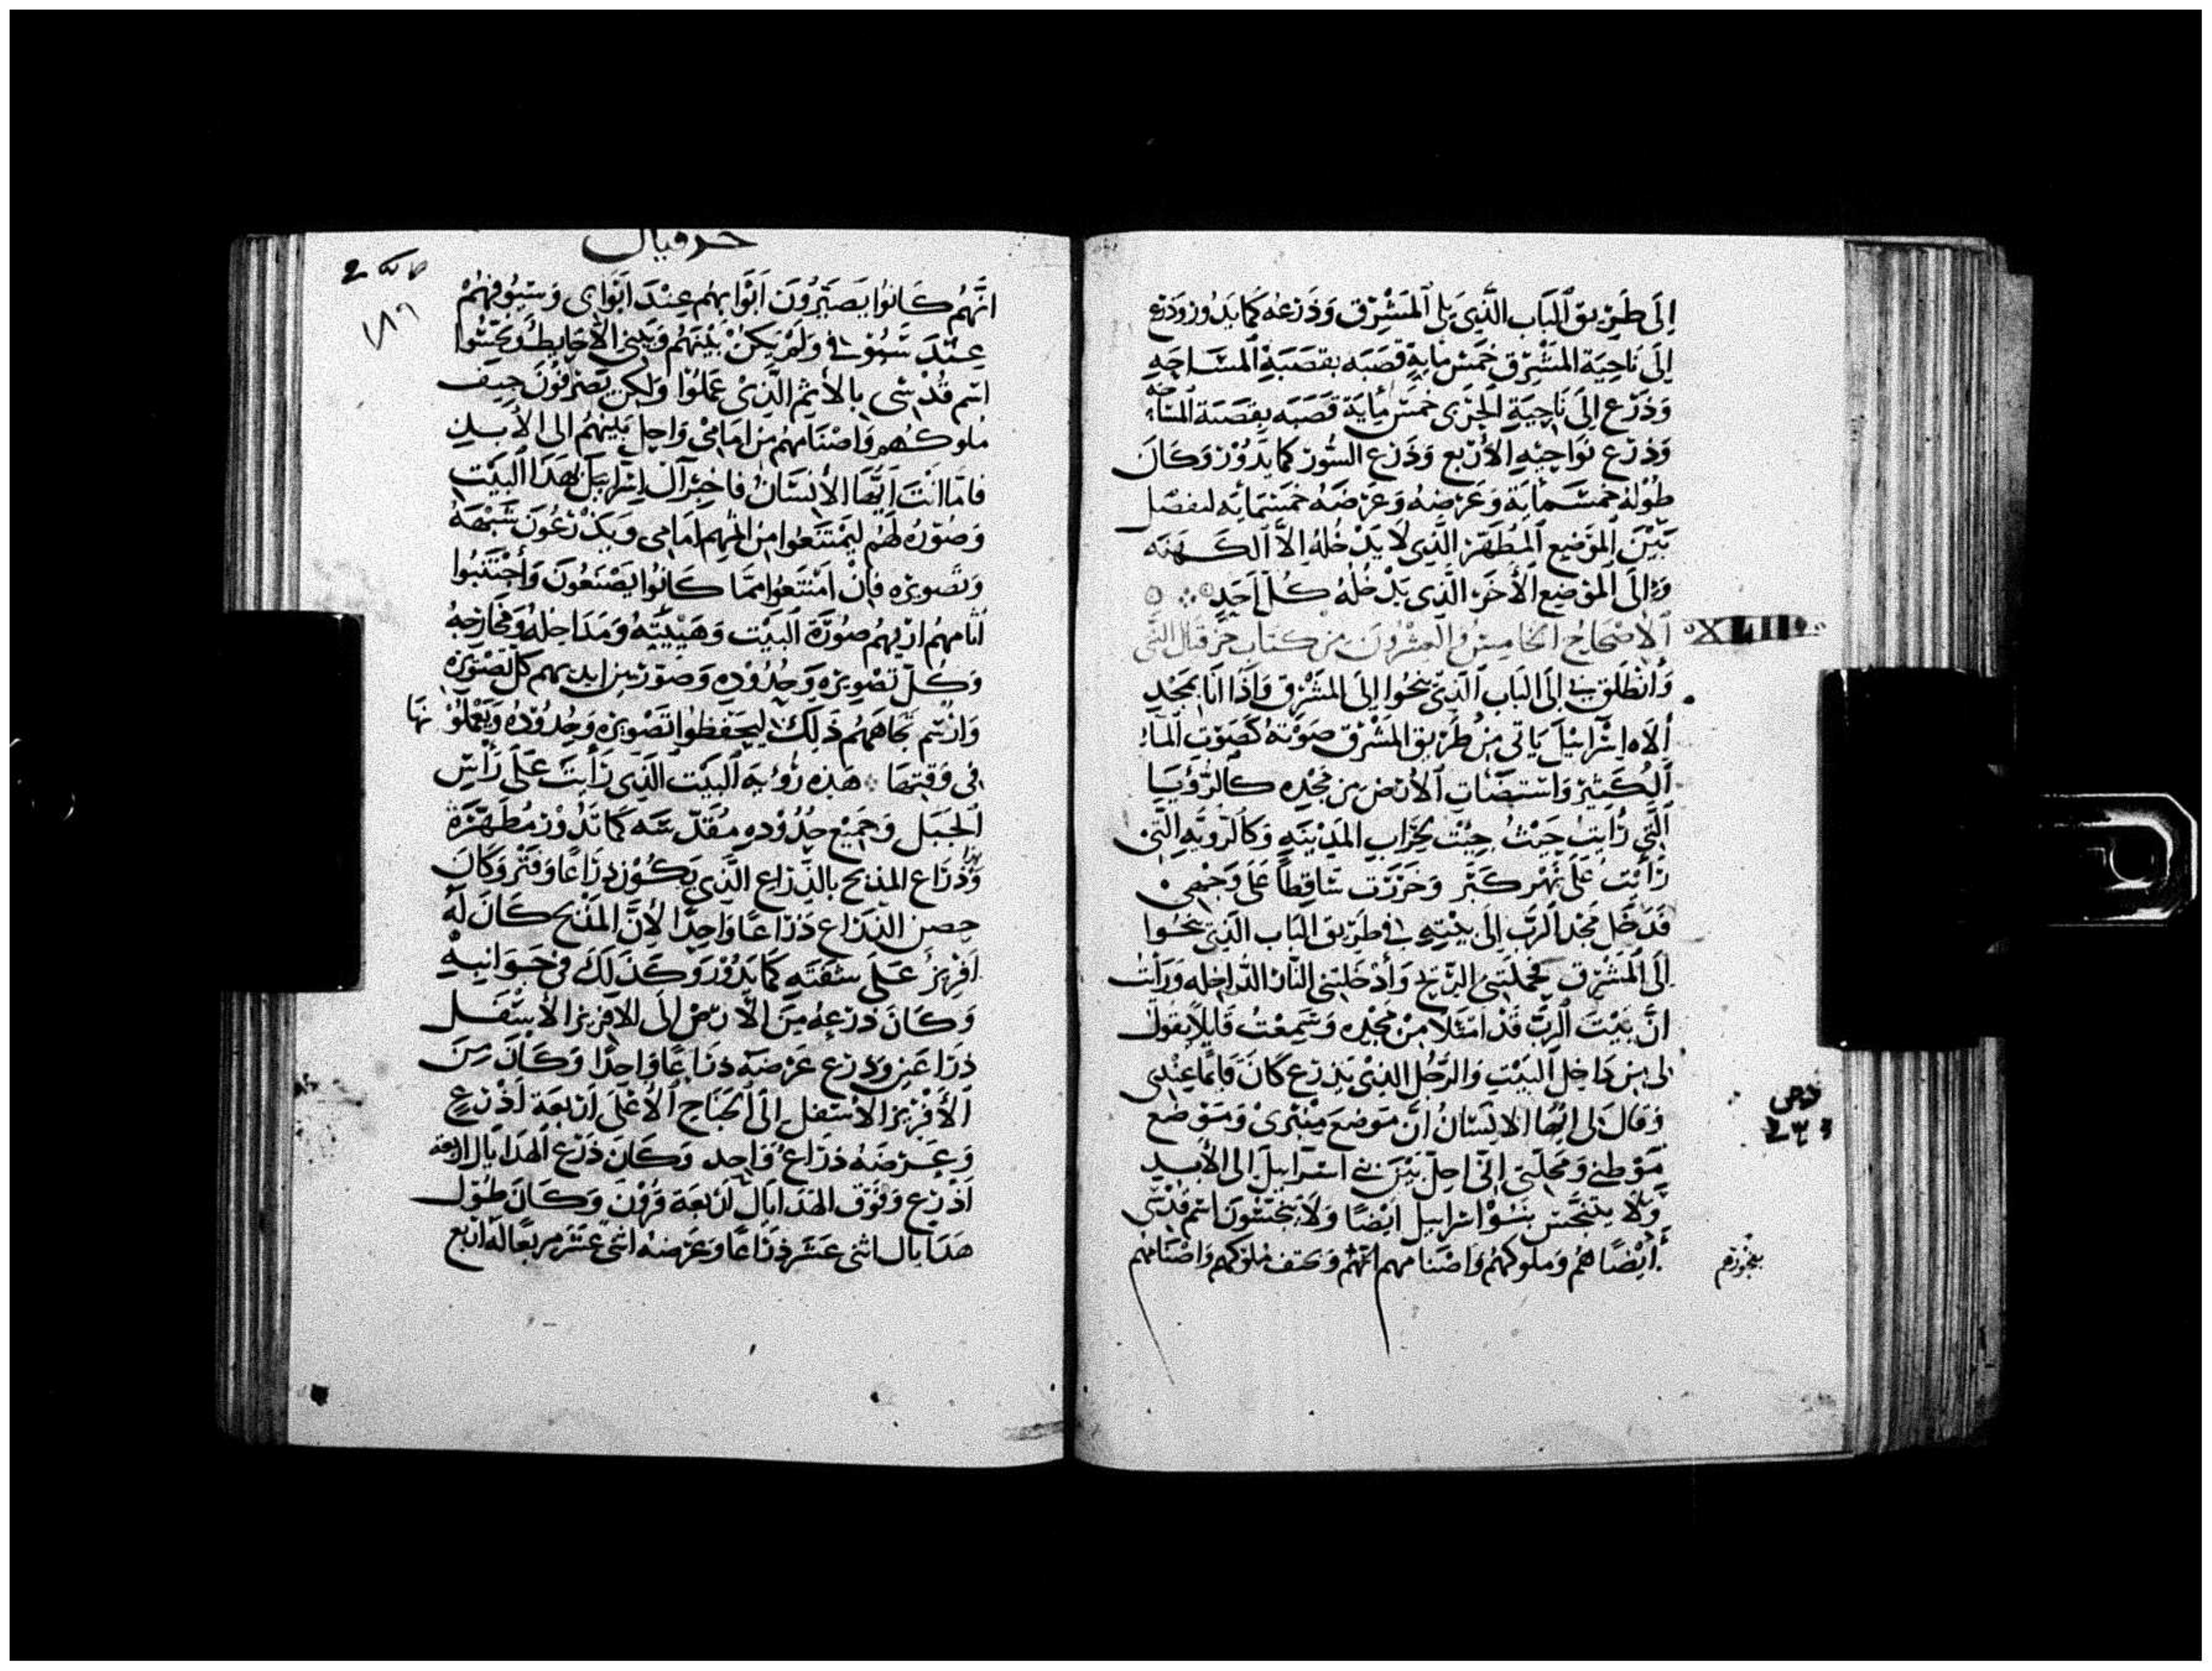 إِلَى طَرِيق الْبَاب الَّذِي يَلِي الْمَشْرِق وَذَرعه كَمَا يَدُور وَذرَع
إِلَى نَاحِيَة المَشْرِق خَمْس مايةِ قصَبَه بقصَبَةِ المسَاحَهِ
وَذَرَع إِلَى نَاحِيَةِ الجرى خَمْس مايَة قَصَبَه بِقصَبَة المسَاحه
وَذرَع نَوَاحِيْهِ الأرْبع وَذَرَع السُّور كَمَا يَدُوْر وَكَانَ
طُوْلهُ خمسَمايَة وَعَرضهُ وَعَرْضَهُ خمسمايَه ليفصَل
بَيْنَ الْمَوْضِع الْمُطَهَّر الَّذِي لَا يَدْخُلهُ إِلَّا الكَهَنَه
وَإِلَى الْمَوْضِع الْأَخَر الَّذِي يَدْخلهُ كُل أَحَدٍ
XLIII
الاصْحَاح الخَامِسُ وَالعِشْرُونَ مِن كِتَاب حزقيَال النَّبي
وَأَنْطَلَق بي إِلَى الْبَاب الَّذِي يَنْحُوا إِلَى المَشْرِق وَإِذَا أَنَا بمَجْدِ
أَلَاه إِسْرَائِيْلَ يَاتي مِنْ طَرِيق المَشْرِق صَوْتهُ كَصَوْتِ المَاءِ
الْكَثِيْر وَاسْتضَات الأَرْض مِن مجْدِه كَالرُّؤيَا
الَّتِي رَأيت حَيْثُ جيْت لخرَابِ المَدِيْنَهِ وَكَالرُّويَهِ الَّتي
رَأَيْت عَلَى نَهْر كَبَر وَخَرَرت سَاقِطاً عَلَى وَجْهِي
فَدَخَل مَجْد الرَّب إِلَى بيْتِهِ في طَرِيق الْبَاب الَّذِي يَنْحُوا
إِلَى الْمَشْرِق فحَملَتني الرِّيح وَأَدْخَلتني الدَّار الدَّاخِله وَرَأيت
انَّ بَيْتَ الرَّبّ قَدْ امْتلا مِنْ مجْدِه وَسَمِعْتُ قَايِلاً يقول
لي مِن دَاخل الْبَيْتِ وَالرَّجُل الَّذِي يَذرَع كَانَ قَائمًا عِنْدِي
وَقَالَ لي ايُّهَا الانسَانُ انَّ مَوضِعَ مِنْبَري وَمَوْضع
مَوْطني وَمَحلَّتي اني احِلّ بَيْنَ بني اسْرَائِيل إِلى الأَبَدِ
وَلَا يتنجَّس بَنُوْا اسرَايِيل ايْضًا وَلَا ينجّسُونَ اسْم قُدْسي
أَيْضًا هُم وَملوكهُم وَاصْنَامهم وَاصْنَامهُم
بفجورهم
حزقيال
١٨٩
انَّهُم كَانُوا يصَيِّرُونَ أَبْوَابهُم عِنْدَ أَبْوَابي وَسقوفهُمْ
عِنْدَ سقوفي وَلَمْ يَكُنْ بَيْنهُم وَبَيْني الا حَايط وَنجّسُوا
اسْم قُدْسي بالاثم الَّذِي عَمِلُوا وَلَكِن يَصْرفُونَ جيف
مُلوكهم وَاصْنَامهُم مِن امَامي وَاحِل بَيْنهُم إِلى الأَبَدِ
فامَّا انْتَ ايُّهَا الأنسَانُ فاخبر آل اسْرَايِيل بهَذَا الْبَيْت
وَصُوّره لَهُم ليَمْتَنعُوا مِن اثمهم امَامي وَيَذْرَعُونَ شبْههُ
وَتصويره فإِن امْتَنعُوا ممَّا كَانُوا يَصْنعُونَ وَأَجْتَنَبُوا
اثامهُم اريهُم صُوْرَةَ البَيْت وَهَيْئَتهُ وَمَدَاخلهُ وَمخَارجهُ
وَكُلّ تصْويره وَحُدُوْدِه وَصَوّر بين ايديهم كل تَصْوِيره
وَارْسم تجَاههُم ذَلِكَ ليحفظُوا تصْويره وَحُدُوْدهُ وَيَعْمَلُوْنهَا
في وَقتِهَا هَذِه رُؤيَة الْبَيْت الَّذِي رَأَيتَ عَلَى رَأس
الجَبَل وَجَمِيْع حُدُوْدِهِ مُقَدَّسَه كَمَا تَدُوْر مُطَهَّرَة
وَذرَاع المذبَح بالذّرَاع الَّذِي يَكُوْن ذرَاعًا وَفتر وَكَانَ
حِصن الذرَاع ذرَاعًا وَاحِدًا لأَنَّ المَذْبَح كَانَ لَهُ
افرِيز عَلَى شفته كَمَا يَدُوْر وَكَذَلِك في جَوَانبهِ
وَكَانَ ذَرْعهُ مِنَ الأرْض إِلى الافريز الأَسْفَل
ذرَاعَين وَذرع عَرْضه ذرَاعًا وَاحِدًا وَكَانَ مِنَ
الأَفْرِيز الاسْفل إِلَى الجنَاح الأَعْلَى ارْبعَة اَذْرعٍ
وَعَرضَهُ ذرَاع وَاحِد وَكَانَ ذرْع الهدَايَال اربعة
اَذْرع وَفَوْق الهَدَايَال ارْبعَة قرُوْن وَكَانَ طُوْل
هدَايَال اثني عَشَر ذرَاعًا وَعَرضهُ اثني عشَر مربّعًا لَهُ اربع